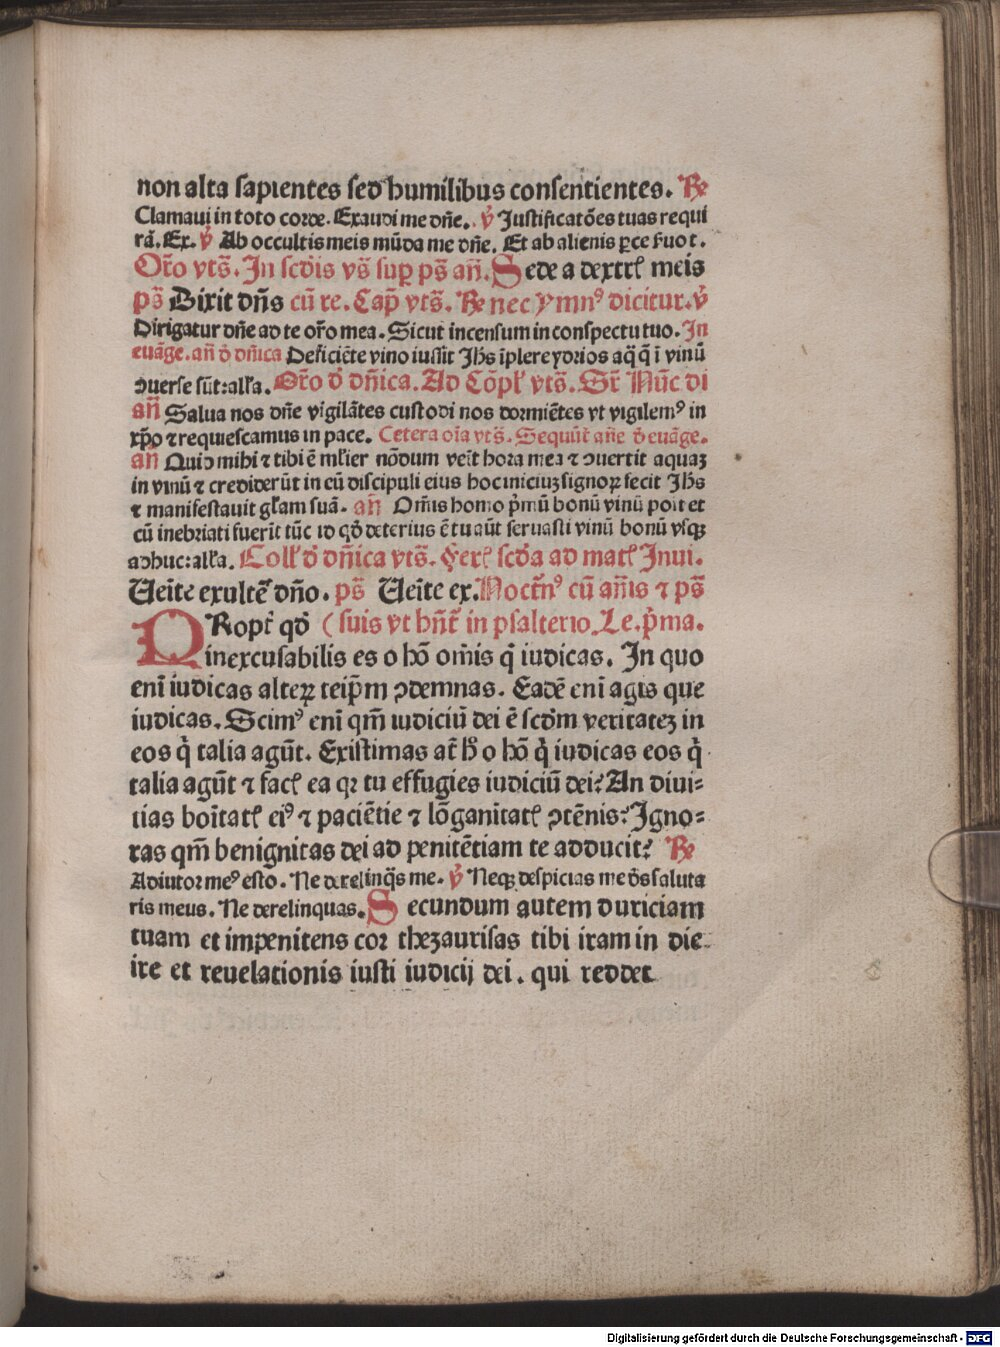 non alta sapientes sed humilibus consentientes. R̃
Clamaui in toto corde. Exaudi me dñe. v̇ Justificatões tuas requi
rã. Ex. v̇ Ab occultis meis mũda me dñe. Et ab alienis ꝑce ſuo t.
Or̃o vts̃. In scd̃is vs̃ suꝑ ps̃ añ. Sede a dextrꝭ meis
ps̃ Dixit dñs cũ re. Cap̃ vts̃. R̃ nec ymnꝰ dicitur. v̇
Dirigatur dñe ad te or̃o mea. Sicut incensum in conspectu tuo. In
euãge. añ d̃ dñica Deficiẽte vino iussit Jh̃s ĩplere ydrios aq̃ q̃ ĩ vinũ
ↄuerse sũt: all̃a. Or̃o d̃ dñica. Ad Cõpl̃ vts̃. Sr̃ Nũc di
añ Salua nos dñe vigilãtes custodi nos dormiẽtes vt vigilemꝰ in
xp̃o ⁊ requiescamus in pace. Cetera oĩa vts̃. Sequũt̃ añe d̃ euãge.
añ Quid mihi ⁊ tibi ẽ ml̃ier nõdum veĩt hora mea ⁊ ↄuertit aquaꝫ
in vinũ ⁊ crediderũt in eũ discipuli eius hoc iniciuꝫ signoꝝ fecit Jh̃s
⁊ manifestauit gl̃am suã. añ Om̃is homo p̃mũ bonũ vinũ poĩt et
cũ inebriati fuerĩt tũc id qd̃ deterius ẽ tu aũt seruasti vinũ bonũ vsqꝫ
adhuc: all̃a. Coll̃ d̃ dñica vts̃. Ferꝭ scd̃a ad matꝭ Inui.
Ueĩte exultẽꝰ dño. ps̃ Ueĩte ex. Noct̃nꝰ cũ añis ⁊ ps̃
QRopt̃ qd̃ ( suis vt hñt̃ in psalterio. Le. p̃ma.
inexcusabilis es o hõ om̃is q̇ iudicas. In quo
enĩ iudicas alteꝝ teip̃m ↄdemnas. Eadẽ enĩ agis que
iudicas. Scimꝰ enĩ qm̃ iudiciũ dei ẽ scd̃m veritateꝫ in
eos q̇ talia agũt. Existimas at̃ h̃ o hõ q̇ iudicas eos q̇
talia agũt ⁊ facꝭ ea qꝛ tu effugies iudiciũ dei? An diui⸗
tias boĩtatꝭ eiꝰ ⁊ paciẽtie ⁊ lõganĩtatꝭ ↄtẽnis? Igno⸗
ras qm̃ benignitas dei ad penitẽtiam te adducit? R̃
Adiutor meꝰ esto. Ne derelinq̃s me. v̇ Neqꝫ despicias me d̃s saluta
ris meus. Ne derelinquas. Secundum autem duriciam
tuam et impenitens cor thezaurisas tibi iram in die
ire et reuelationis iusti iudicij dei. qui reddet
Digitalisierung gefördert durch die Deutsche Forschungsgemeinschaft - DFG